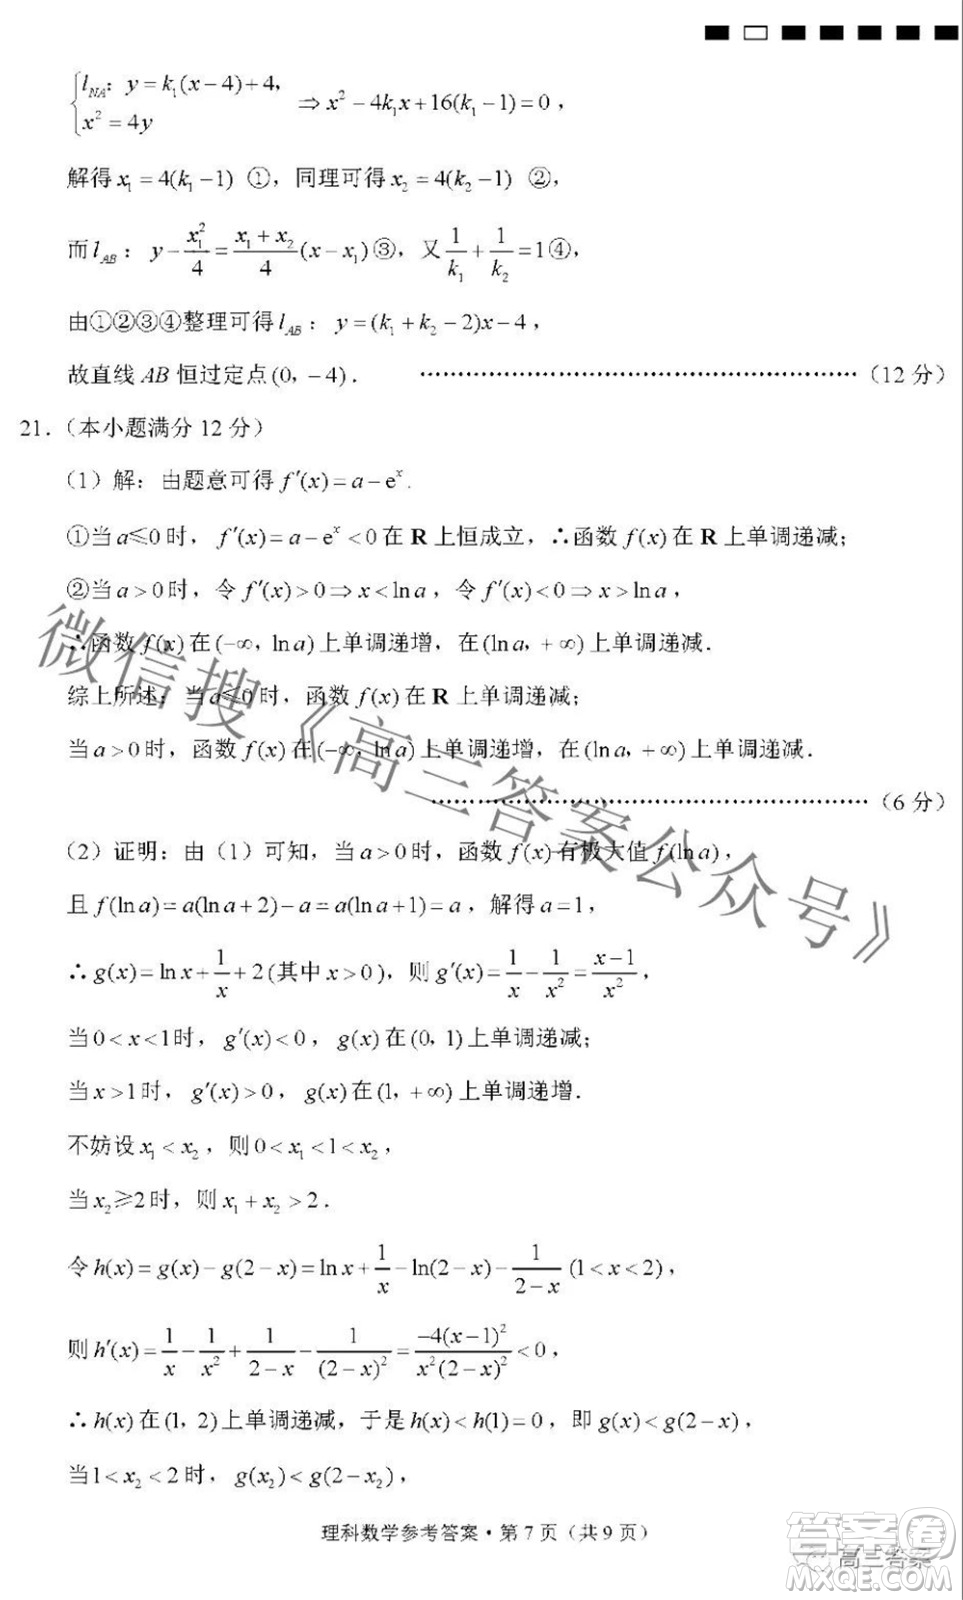 {l_{NA}: y=k₁(x−4)+4,
x²=4y ⇒x²−4k₁x+16(k₁−1)=0，
解得x₁=4(k₁−1) ①，同理可得x₂=4(k₂−1) ②，
而l_{AB}： y−x₁²/4=(x₁+x₂)/4(x−x₁)③，又1/k₁+1/k₂=1④，
由①②③④整理可得l_{AB}： y=(k₁+k₂−2)x−4，
故直线AB恒过定点(0，−4)．………………………………………………（12 分）
21．（本小题满分 12 分）
（1）解：由题意可得f′(x)=a−eˣ.
①当a≤0时，f′(x)=a−eˣ<0在R上恒成立，∴函数f(x)在R上单调递减；
②当a>0时，令f′(x)>0⇒x<ln a，令f′(x)<0⇒x>ln a，
∴函数f(x)在(−∞，ln a)上单调递增，在(ln a，+∞)上单调递减．
综上所述：当a≤0时，函数f(x)在R上单调递减；
当a>0时，函数f(x)在(−∞，ln a)上单调递增，在(ln a，+∞)上单调递减．
………………………………………………（6 分）
（2）证明：由（1）可知，当a>0时，函数f(x)有极大值f(ln a)，
且f(ln a)=a(ln a+2)−a=a(ln a+1)=a，解得a=1，
∴g(x)=ln x+1/x+2(其中x>0)，则g′(x)=1/x−1/x²=(x−1)/x²，
当0<x<1时，g′(x)<0，g(x)在(0，1)上单调递减；
当x>1时，g′(x)>0，g(x)在(1，+∞)上单调递增．
不妨设x₁<x₂，则0<x₁<1<x₂，
当x₂≥2时，则x₁+x₂>2．
令h(x)=g(x)−g(2−x)=ln x+1/x−ln(2−x)−1/(2−x) (1<x<2)，
则h′(x)=1/x−1/x²+1/(2−x)−1/(2−x)²=−4(x−1)²/(x²(2−x)²)<0，
∴h(x)在(1，2)上单调递减，于是h(x)<h(1)=0，即g(x)<g(2−x)，
当1<x₂<2时，g(x₂)<g(2−x₂)，
理科数学参考答案·第 7 页（共 9 页）
微信搜《高三答案公众号》
答案卷
高三答案
MXQE.COM